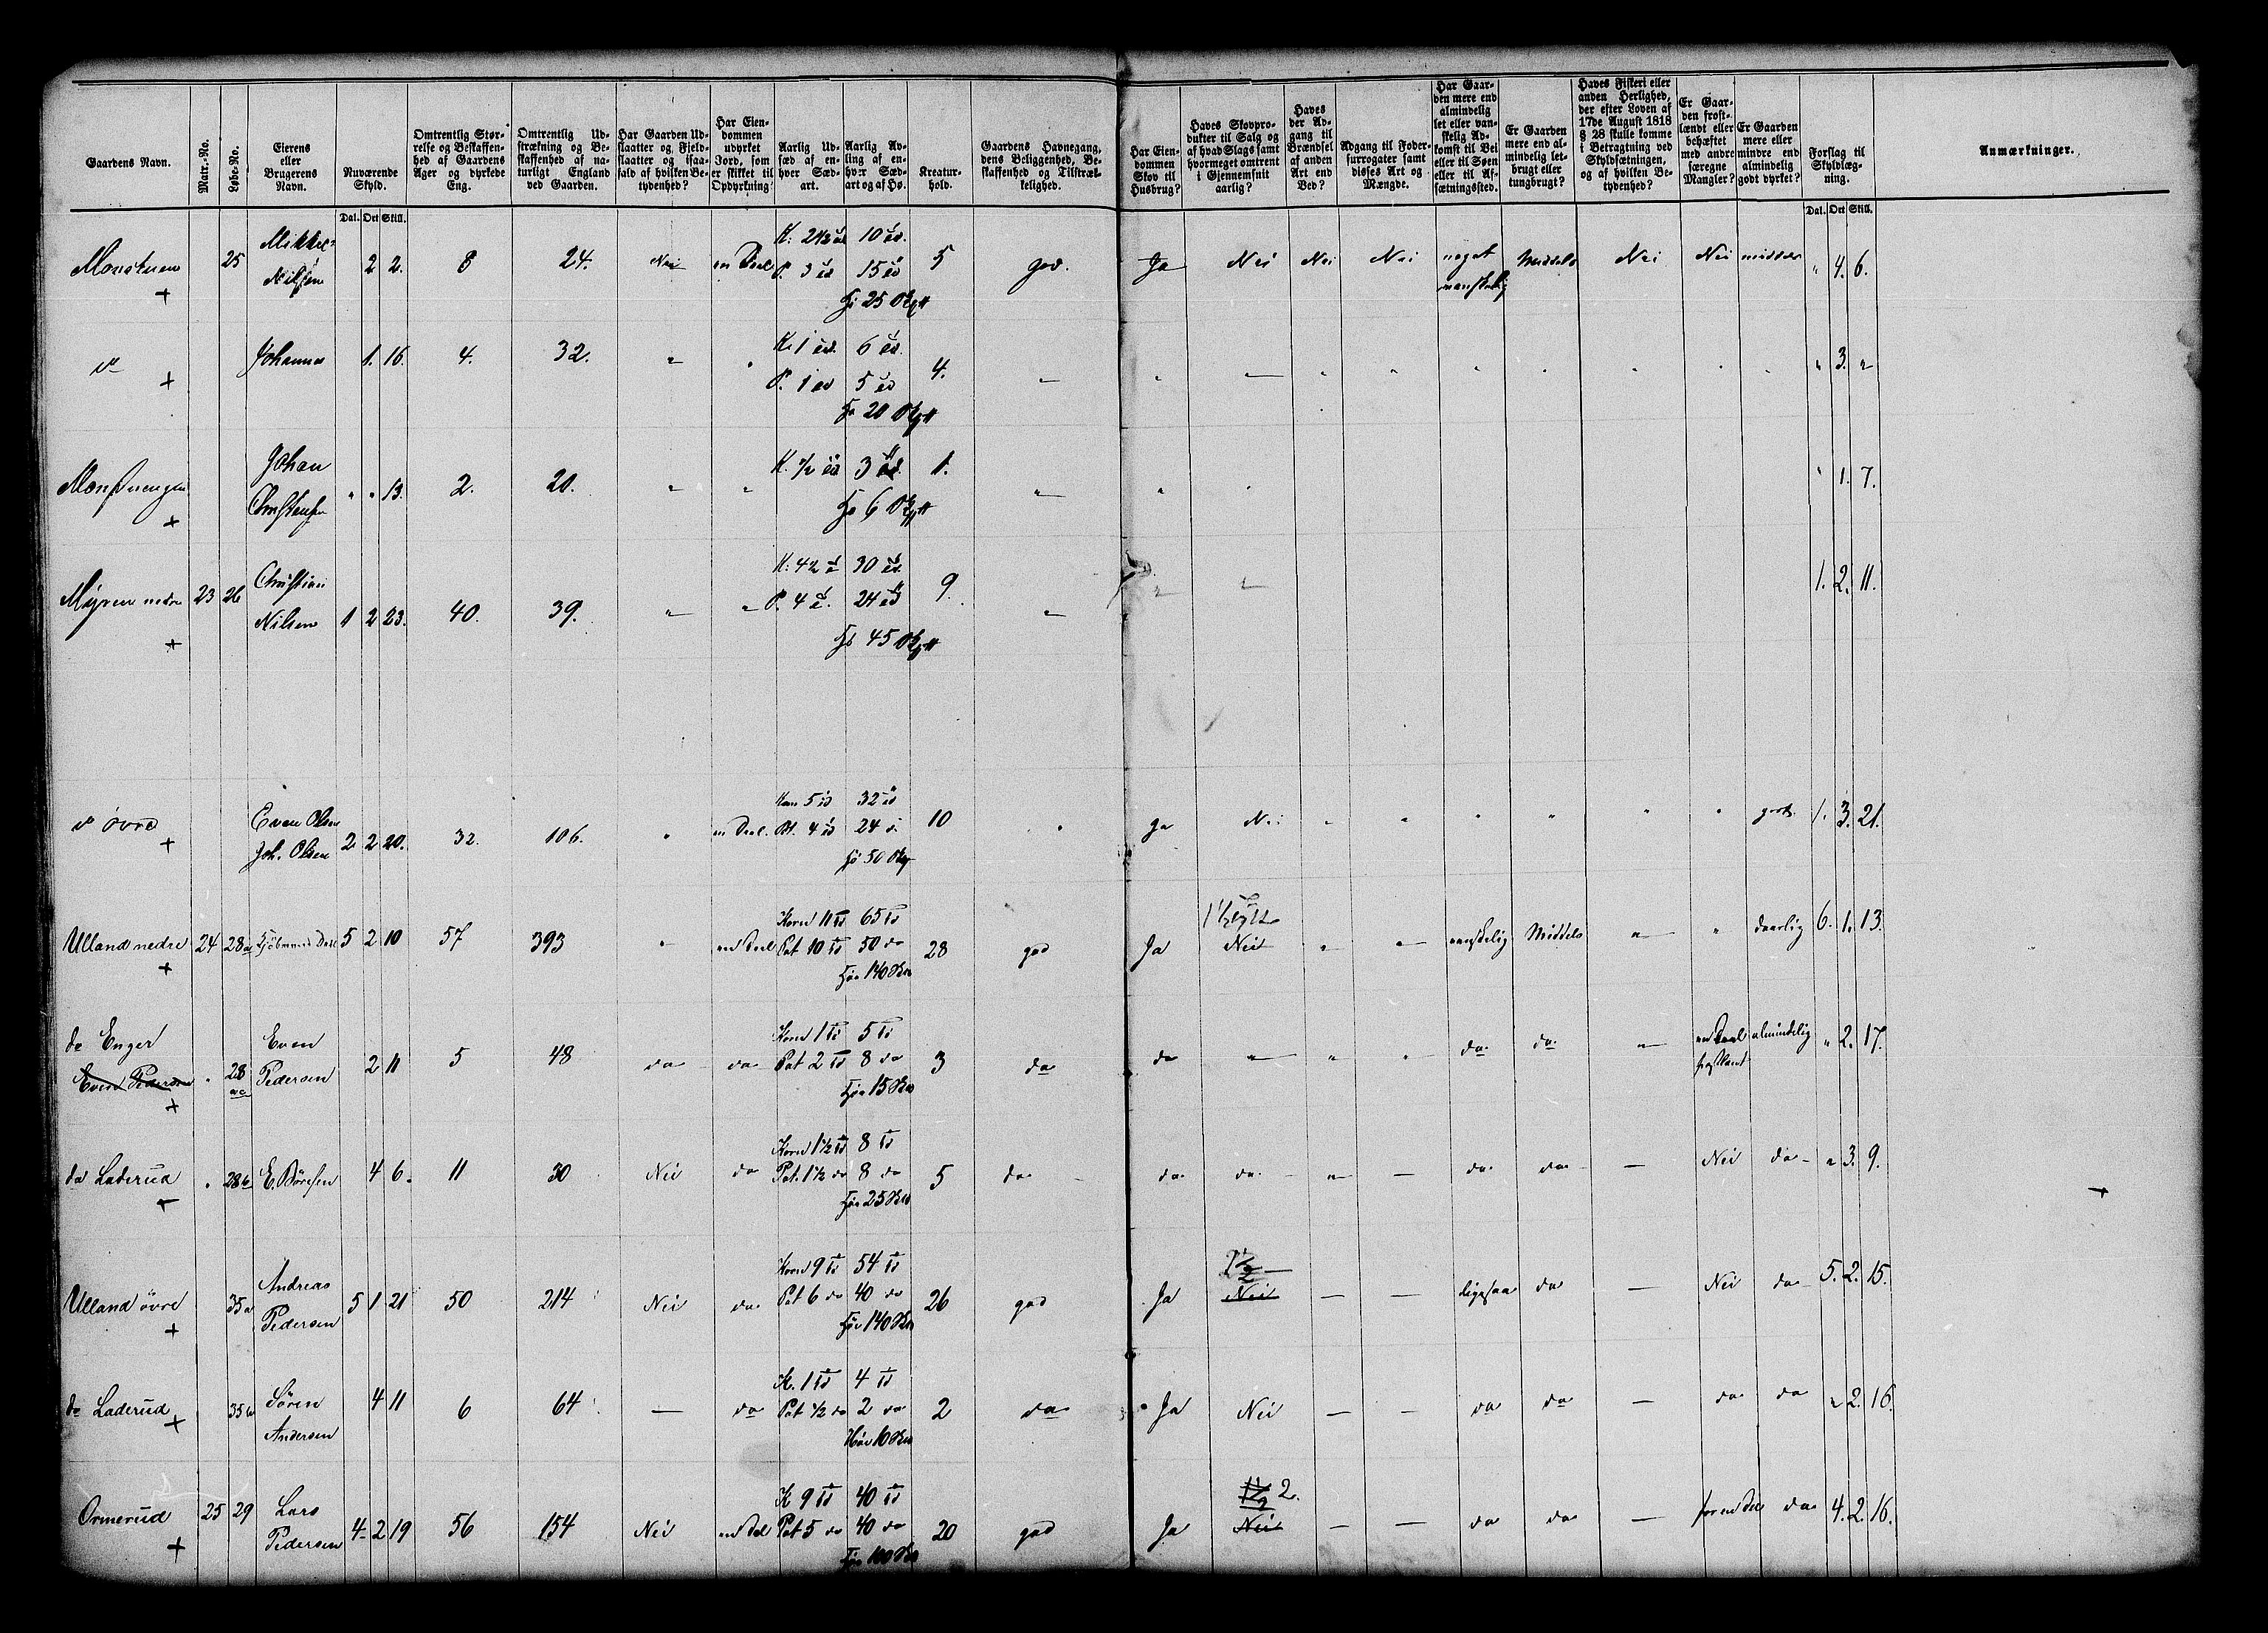 Gaardens Navn. Matr.-No. Løbe-No. Eierens eller Brugerens Navn. Nuværende Skyld. Omtrentlig Størrelse og Beskaffenhed af Gaardens Ager og dyrkede Eng. Omtrentlig Udstrækning og Beskaffenhed af naturligt England ved Gaarden. Har Gaarden Udslaatter og Fjeldslaatter og isaafald af hvilken Betydenhed? Har Eiendommen udyrket Jord, som er skikket til Opdyrkning? Aarlig Udsæd af enhver Sædart. Aarlig Avling af enhver Sædart og af Hø. Kreaturhold. Gaardens Havnegang, dens Beliggenhed, Beskaffenhed og Tilstrækkelighed. Har Eiendommen Skov til Husbrug? Haves Skovprodukter til Salg og af hvad Slags samt hvormeget omtrent i Gjennemsnit aarlig? Haves der Adgang til Brændsel af anden Art end Ved? Adgang til Foder-surrogater samt disses Art og Mængde. Har Gaarden mere end almindelig let eller vanskelig Adkomst til Vei eller til Søen eller til Afsætningssted. Er Gaarden mere end almindelig letbrugt eller tungbrugt? Haves Fiskeri eller anden Herlighed, der efter Loven af 17de August 1818 § 28 skulle komme i Betragtning ved Skyldsætningen, og af hvilken Betydenhed? Er Gaarden frostlændt eller behæftet med andre særegne Mangler? Er Gaarden mere eller mindre end almindelig godt dyrket? Forslag til Skyldlægning. Anmærkninger.
Dal. Ort Skill. Dal. Ort Skill.
25 Mikkel K: 2 1/2 10
Nilsen 2 2. 8 24. Nei en Deel P. 3 15 5 god. Ja Nei Nei Nei noget vanskelig Middels Nei Nei middels " 4. 6.
+ Hø 25
Johannes 1. 16. 4. 32. " " K: 1 6 4. " 3. "
+ P. 1 5
Hø 20
Johan K. 1/2 3 1.
" " 13. 2. 20. " " Hø 6 " 1. 7.
+
Myren nedre 23 26 Christian K: 4 1/2 30 9. 1. 2. 11.
Nilsen 1 2 23. 40. 39. " " P. 4 24
+ Hø 45
øvre Even Olsen Korn 5 32
+ Joh. Olsen 2 2 20. 32. 106. " en Deel. Pt. 4 24 10 Ja Nei " " " " " " godt. 1. 3. 21.
Hø 50
1 1/2
Ulland nedre 24 28a 5 2 10 57 393 " en Deel Korn 11 Td 65 Td
+ Pot 10 Td 50 do 28 god Ja Nei " " vanskelig Middels " " daarlig 6. 1. 13.
Høe 140
do Enger Even Korn 1 Td 5 Td
Even Pedersen " 28 Pedersen 2 11 5 48 do do Pot 2 Td 8 do 3 do do " " " do do " en Deel almindelig " 2. 17.
+ Høe 15
do Laderud " 28b E. Børesen 4 6. 11 30 Nei do Korn 1 1/2 Td 8 Td
+ Pot. 1 1/2 do 8 do 5 do do do " — do do — Nei do " 3. 9.
Høe 25 +
Andreas Korn 9 Td 54 Td
Ulland øvre 35a Pedersen 5 1 21 50 214 Nei do Pot 6 do 40 do 26 god Ja Nei — — ligesaa do — Nei do 5. 2. 15.
+ Høe 140
Søren K. 1 Td 4 Td
do Laderud 35b Andersen 4 11 6 64 — do Pot 1/2 do 2 do 2 do Ja Nei — — do do — do do " 2. 16.
+ Høe 10
Lars K 9 Td 40 Td 2.
Ormerud 25 29 Pedersen 4 2 19 56 154 Nei en Del Pot 5 do 40 do 20 god Ja Nei — — do do — for en Del do 4. 2. 16.
+ Høe 100